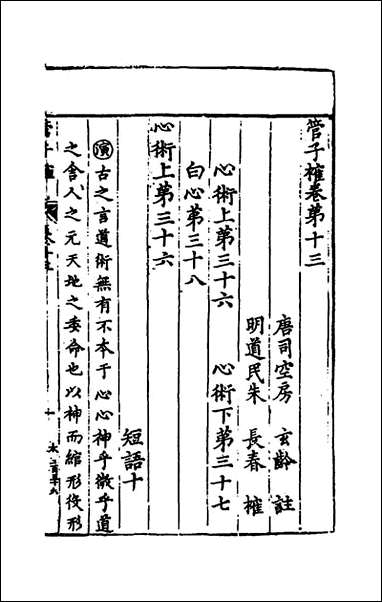 管子榷卷第十三
唐司空房 玄齡 註
明道民朱 長春 榷
心術上第三十六 心術下第三十七
白心第三十八
心術上第三十六
短語十
演 古之言道術無有不本于心心神乎微乎道
之舍人之元天地之委命也以神而綰形役形